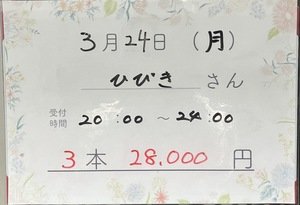 3月24日 (月)
ひびき さん
受付時間 20:00 〜 24:00
3本 28.000 円